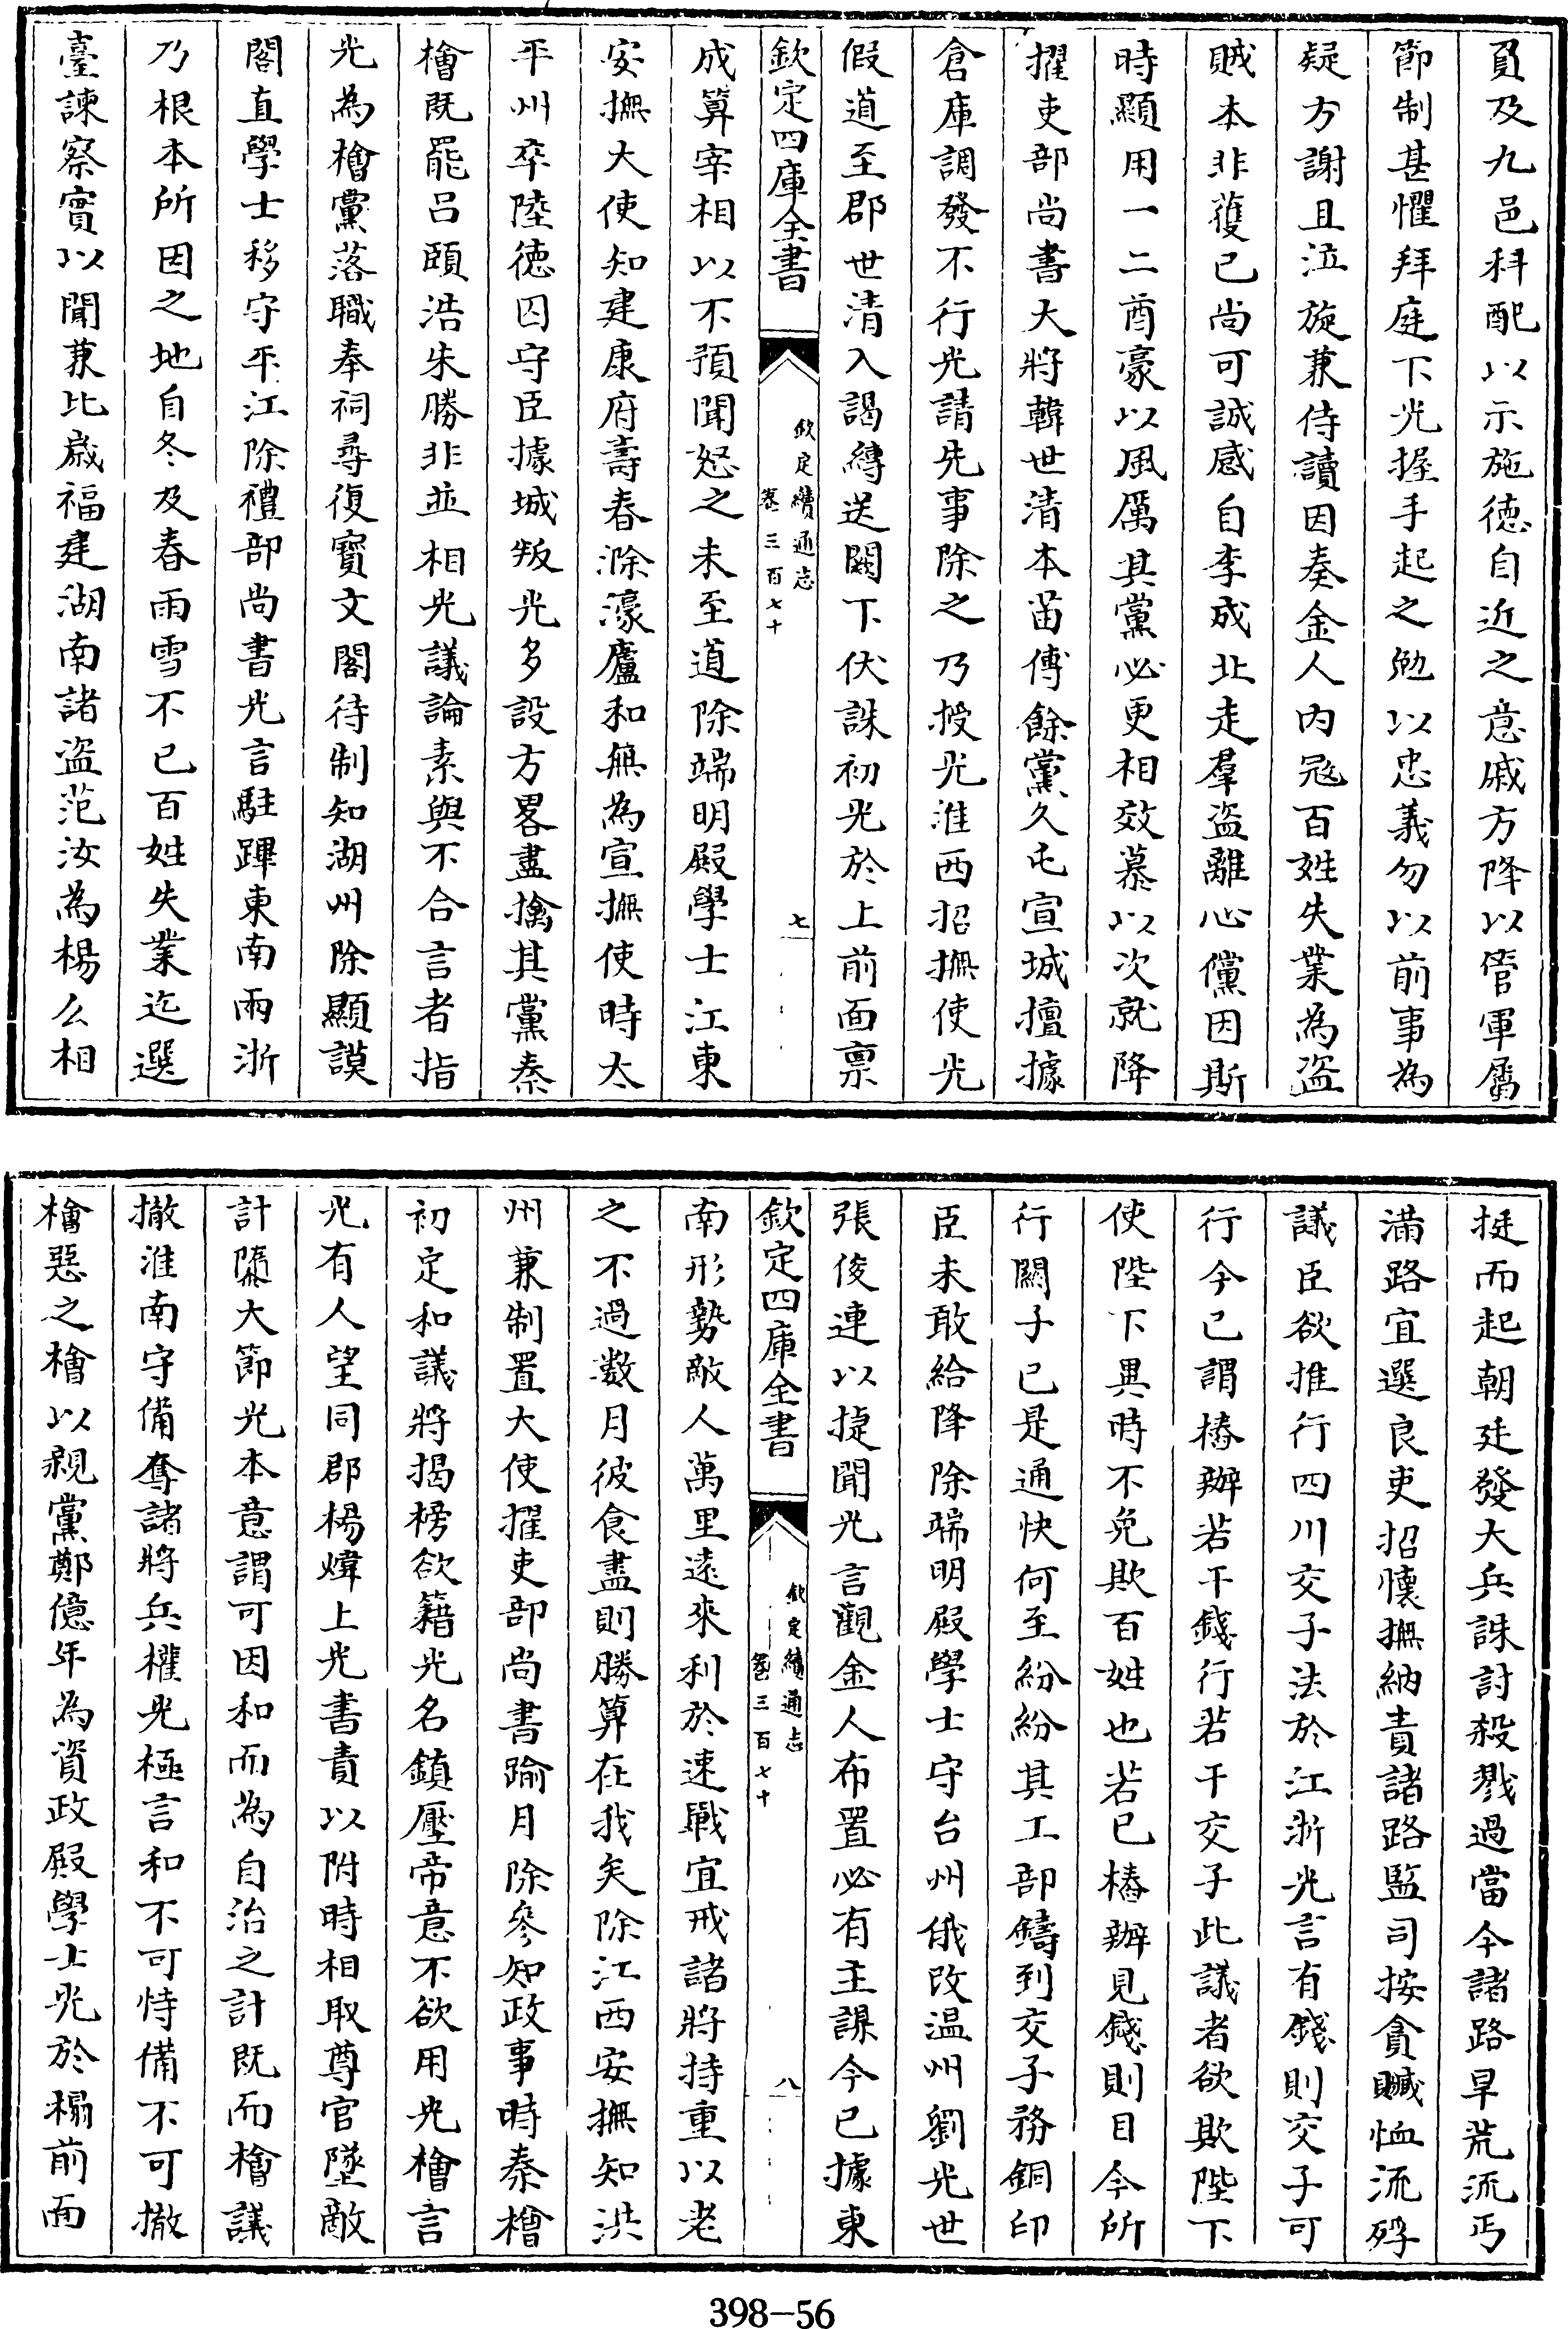 員及九邑科配以示施徳自近之意戚方降以管軍屬
節制甚懼拜庭下光握手起之勉以忠義勿以前事為
疑方謝且泣旋兼侍讀因奏金人内冦百姓失業為盜
賊本非獲已尚可誠感自李成北走羣盜離心儻因斯
時顯用一二酋豪以風厲其黨必更相效慕以次就降
擢吏部尚書大將韓世清本苗傅餘黨久屯宣城擅據
倉庫調發不行光請先事除之乃授光淮西招撫使光
假道至郡世清入謁縛送闕下伏誅初光於上前面禀
欽定四庫全書
欽定續通志
卷三百七十
七
成算宰相以不預聞怒之未至道除端明殿學士江東
安撫大使知建康府壽春滁濠廬和無為宣撫使時太
平州卒陸徳囚守臣據城叛光多設方畧盡擒其黨秦
檜既罷吕頤浩朱勝非並相光議論素與不合言者指
光為檜黨落職奉祠尋復寳文閣待制知湖州除顯謨
閣直學士移守平江除禮部尚書光言駐蹕東南兩浙
乃根本所因之地自冬及春雨雪不已百姓失業迄選
臺諫察實以聞兼比歳福建湖南諸盜范汝為楊么相
挺而起朝廷發大兵誅討殺戮過當今諸路旱荒流丐
滿路宜選良吏招懷撫納責諸路監司按貪贓恤流殍
議臣欲推行四川交子法於江浙光言有錢則交子可
行今已謂樁辦若干錢行若干交子此議者欲欺陛下
使陛下異時不免欺百姓也若已樁辦見錢則目今所
行闗子已是通快何至紛紛其工部鑄到交子務銅印
臣未敢給降除端明殿學士守台州俄改温州劉光世
張俊連以捷聞光言觀金人布置必有主謀今已據東
欽定四庫全書
欽定續通志
卷三百七十
八
南形勢敵人萬里逺來利於速戰宜戒諸將持重以老
之不過數月彼食盡則勝算在我矣除江西安撫知洪
州兼制置大使擢吏部尚書踰月除參知政事時秦檜
初定和議將揭榜欲籍光名鎮壓帝意不欲用光檜言
光有人望同郡楊煒上光書責以附時相取尊官墜敵
計隳大節光本意謂可因和而為自治之計既而檜議
撤淮南守備奪諸將兵權光極言和不可恃備不可撤
檜惡之檜以親黨鄭億年為資政殿學士光於榻前面
398-56